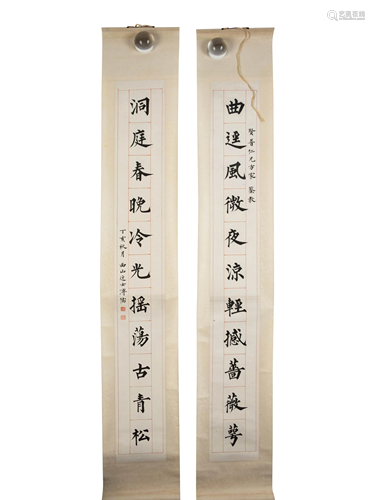 曲逕風微夜涼輕撼薔薇萼
賢善仁兄方家 鑒教
洞庭春晚冷光搖蕩古青松
丁亥秋月 西山逸士溥儒